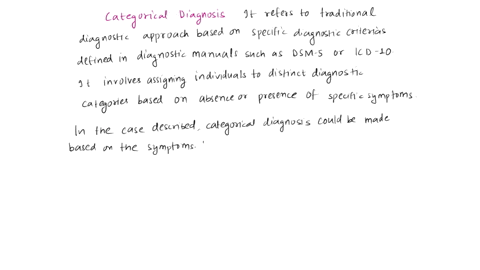 Categorical Diagnosis It refers to traditional
diagnostic approach based on specific diagnostic criterias
defined in diagnostic manuals such as DSM-5 or ICD-10.
It involves assigning individuals to distinct diagnostic
categories based on absence or presence of specific symptoms.
In the case described, categorical diagnosis could be made
based on the symptoms.